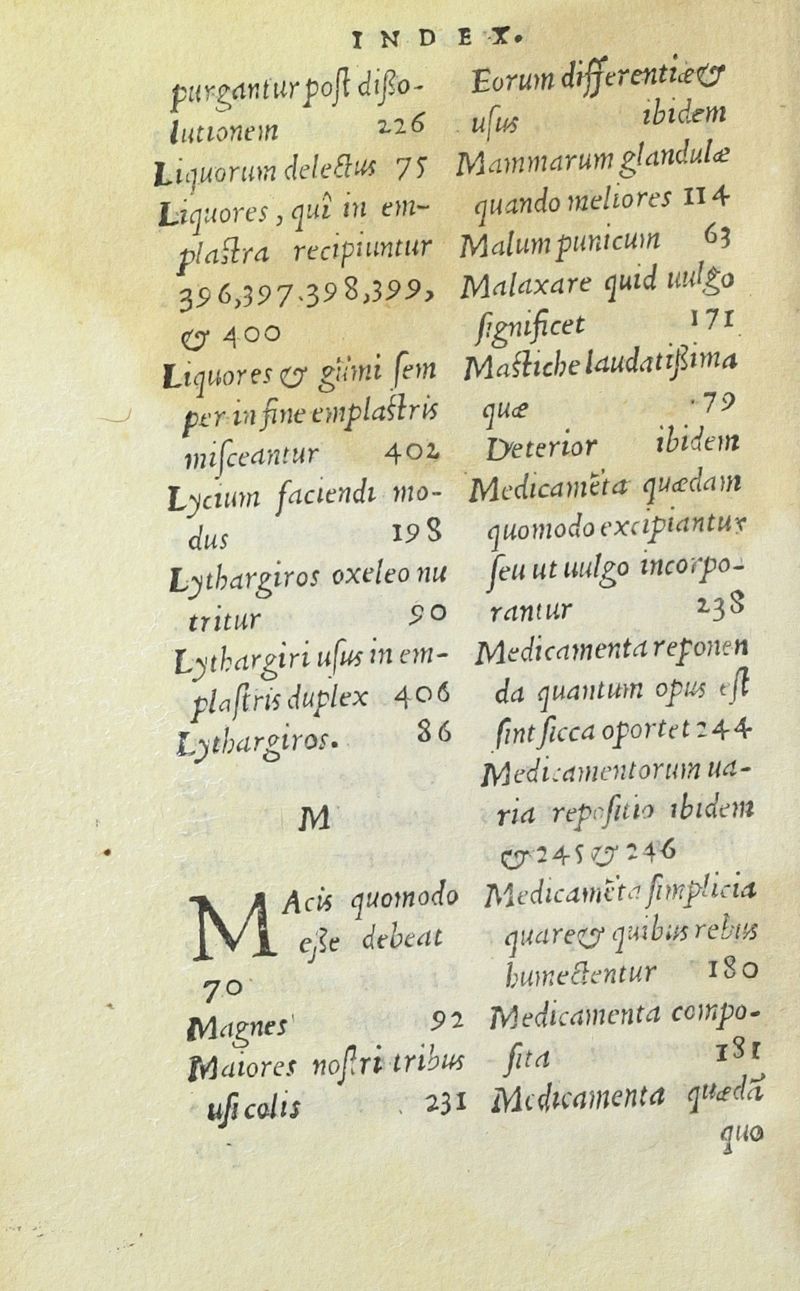 INDEX.
purgantur post disso-
lutionem 226
Liquorum delectus 75
Liquores, quî in em-
plastra recipiuntur
396,397.398,399,
& 400
Liquores & gũmi sem
per in fine emplastris
misceantur 402
Lycium faciendi mo-
dus 198
Lythargiros oxeleo nu
tritur 90
Lythargiri usus in em-
plastris duplex 406
Lythargiros. 86
M
MAcis quomodo
esse debeat
70
Magnes 92
Maiores nostri tribus
usi colis 231
Eorum differentiæ &
usus ibidem
Mammarum glandulæ
quando meliores 114
Malum punicum 63
Malaxare quid uulgo
significet 171
Mastiche laudatissima
quæ 79
Deterior ibidem
Medicamẽta quædam
quomodo excipiantur
seu ut uulgo incorpo-
rantur 238
Medicamenta reponen
da quantum opus est
sint sicca oportet 244
Medicamentorum ua-
ria repositio ibidem
& 245 & 246
Medicamẽta simplicia
quare & quibus rebus
humectentur 180
Medicamenta compo-
sita 181
Medicamenta quædã
quo